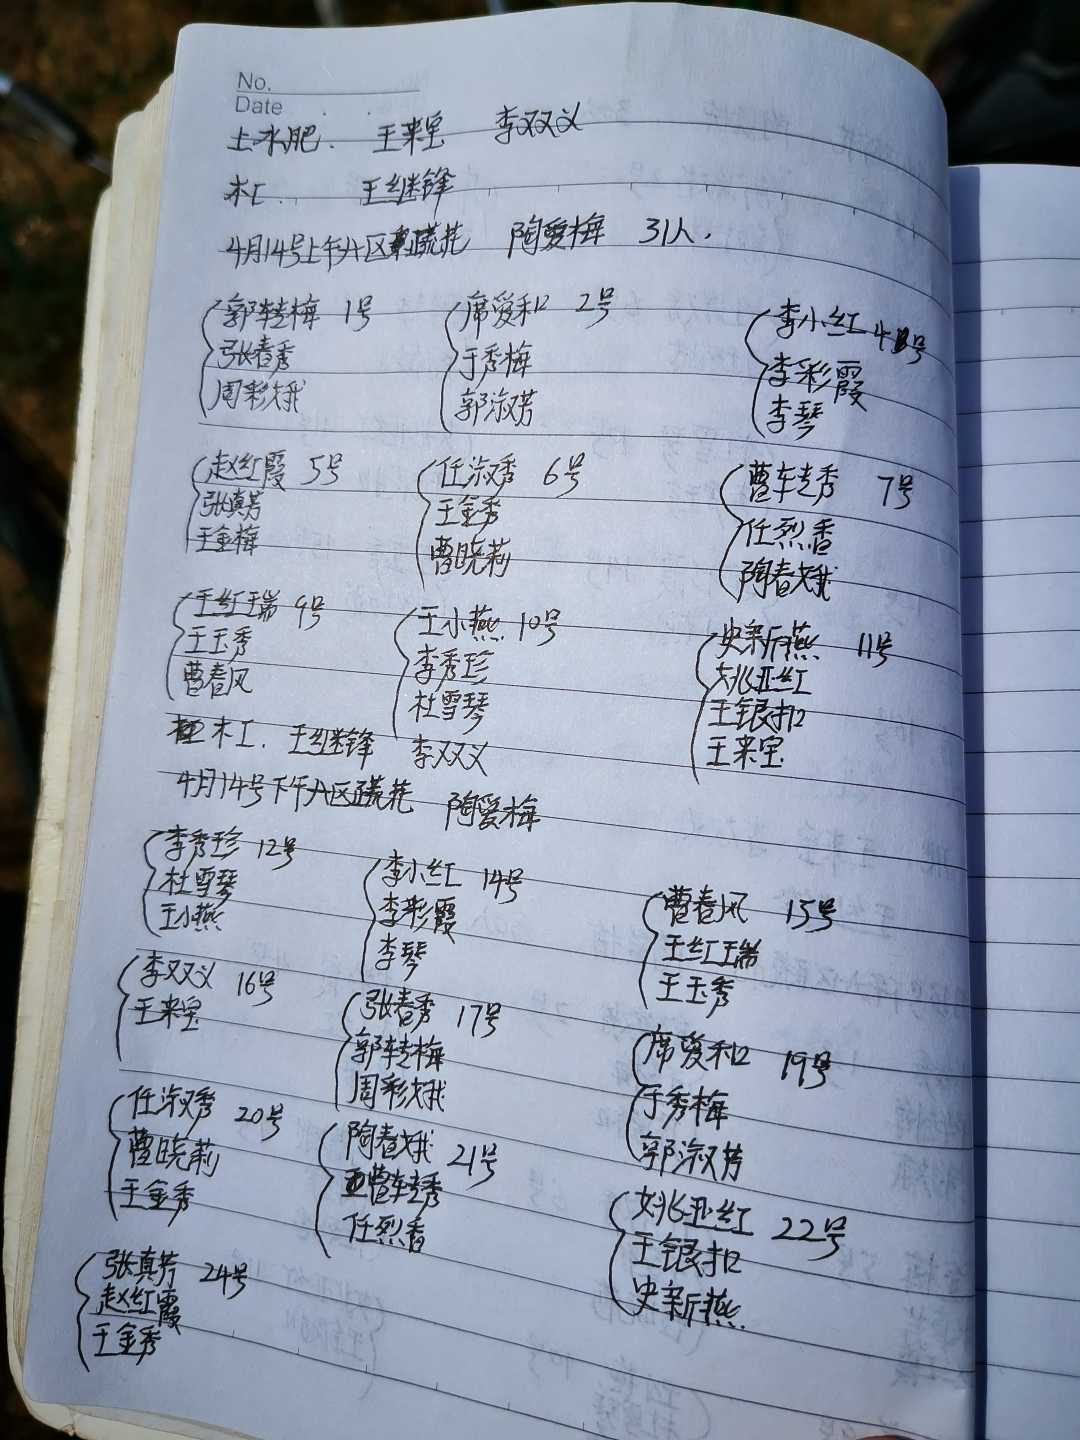 No.
Date
土水肥. 王来宝 李双义
木工. 王继锋
4月14号上午A区疏花 陶爱梅 31人.
郭转梅 1号 席爱和 2号 李小红 4号
张春秀 于秀梅 李彩霞
周彩娥 郭淑芳 李琴
赵红霞 5号 任淑秀 6号 曹转秀 7号
张真芳 王金秀 任烈香
王金梅 曹晓莉 陶春娥
王红瑞 9号 王小燕 10号 史新燕 11号
王玉秀 李秀珍 姚亚红
曹春风 杜雪琴 王银扣
王来宝
木工. 王继锋 李双义
4月14号下午A区疏花 陶爱梅
李秀珍 12号 李小红 14号 曹春风 15号
杜雪琴 李彩霞 王红瑞
王小燕 李琴 王玉秀
李双义 16号 张春秀 17号 席爱和 19号
王来宝 郭转梅 于秀梅
周彩娥 郭淑芳
任淑秀 20号 陶春娥 21号 姚亚红 22号
曹晓莉 曹转秀 王银扣
王金秀 任烈香 史新燕.
张真芳 24号
赵红霞
王金秀